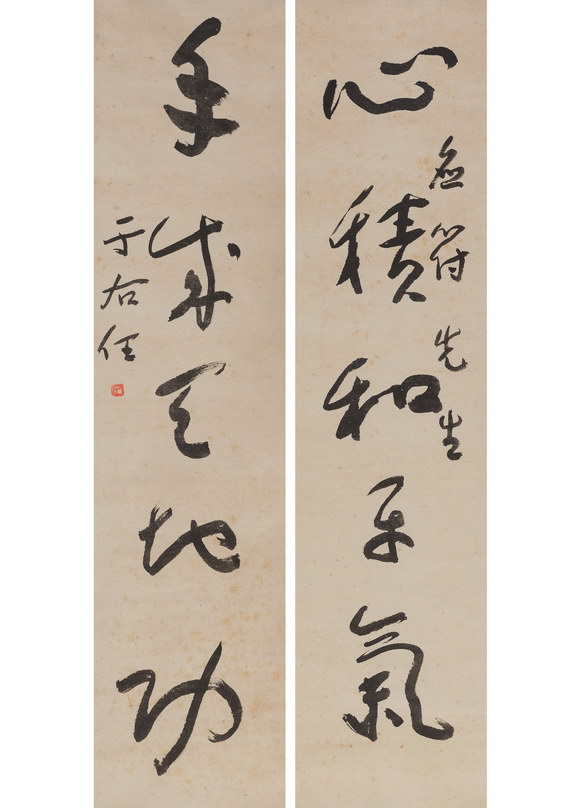 符先生
心積和平氣
手成天地功
于右任